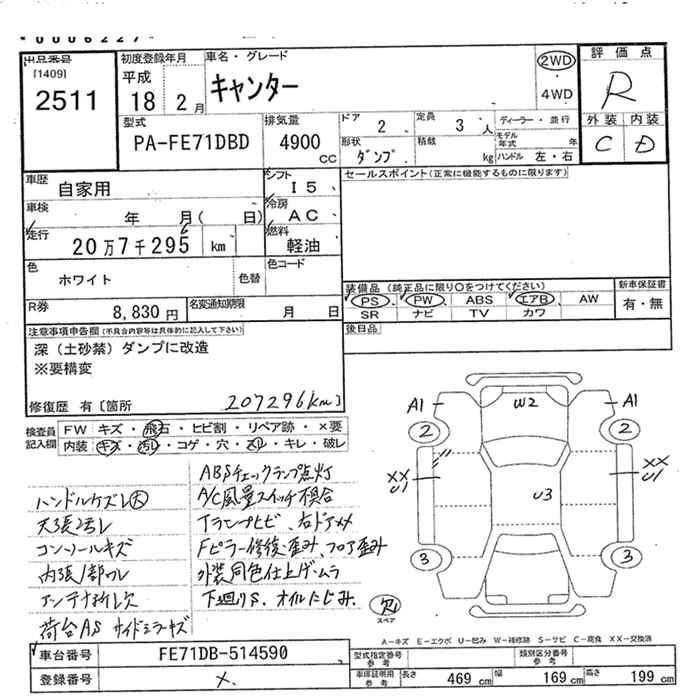 "0006227"
出品番号 [1409] 2511
初度登録年月 平成 18 2月
車名・グレード キャンター
2WD ・ 4WD
評価点 R
外装 C 内装 D
型式 PA-FE71DBD
排気量 4900 cc
ドア 2
定員 3 人
形状 ダンプ
積載 kg
ディーラー・並行
モデル年式 年
ハンドル 左・右
車歴 自家用
シフト I5
セールスポイント(正常に機能するものに限ります)
車検 年 月( 日)
冷房 AC
走行 20万7千295 km
6
燃料 軽油
色 ホワイト 色替
色コード
装備品(純正品に限り○をつけてください)
PS PW ABS エアB AW
SR ナビ TV カワ
新車保証書 有・無
R券 8,830 円
名変通知期限 月 日
後日品
注意事項申告欄(不具合内容等は具体的に記入して下さい)
深(土砂禁)ダンプに改造
※要構変
修復歴 有〔箇所 207296km〕
検査員記入欄
FW キズ・飛石・ヒビ割・リペア跡・×要
内装 キズ・汚れ・コゲ・穴・スリ・キレ・破レ
ABSチェックランプ点灯
ハンドルケズレ大 A/C風量スイッチ不具合
天張汚レ Tランプヒビ、右ドアメメ
コンソールキズ Fピラー修復歪み、フロア歪み
内張1部ワレ 外装同色仕上ゲムラ
アンテナ折レ欠 下廻りS、オイルにじみ
荷台AS サイドミラーキズ
A1 W2 A1
2 2
XX U1 U3 XX U1
3 3
欠 スペア
A-キズ E-エクボ U-凹み W-補修跡 S-サビ C-腐食 XX-交換済
車台番号 FE71DB-514590
型式指定番号 参考
類別区分番号 参考
登録番号 ×
車庫証明用 参考 長さ 469 cm 幅 169 cm 高さ 199 cm